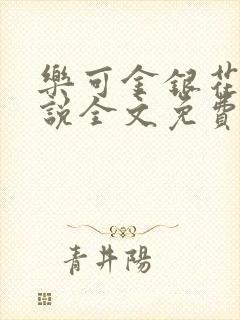 樂可金銀花
說全文免費
青井陽